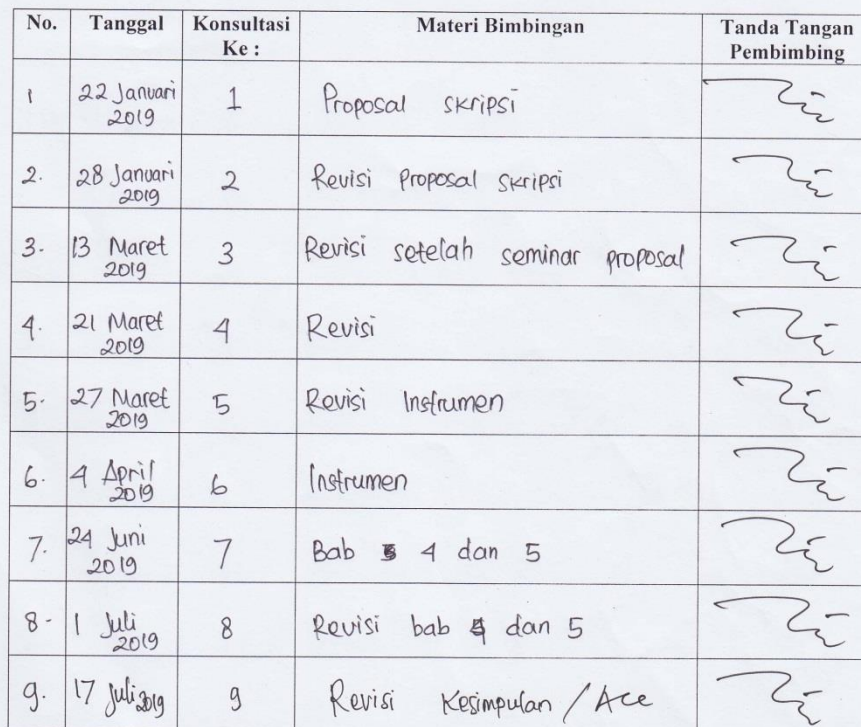 No. Tanggal Konsultasi Ke : Materi Bimbingan Tanda Tangan Pembimbing
1 22 Januari 2019 1 Proposal skripsi
2. 28 Januari 2019 2 Revisi Proposal Skripsi
3. 13 Maret 2019 3 Revisi setelah seminar proposal
4. 21 Maret 2019 4 Revisi
5. 27 Maret 2019 5 Revisi Instrumen
6. 4 April 2019 6 Instrumen
7. 24 Juni 2019 7 Bab 4 dan 5
8. 1 Juli 2019 8 Revisi bab 4 dan 5
9. 17 Juli 2019 9 Revisi Kesimpulan / Acc